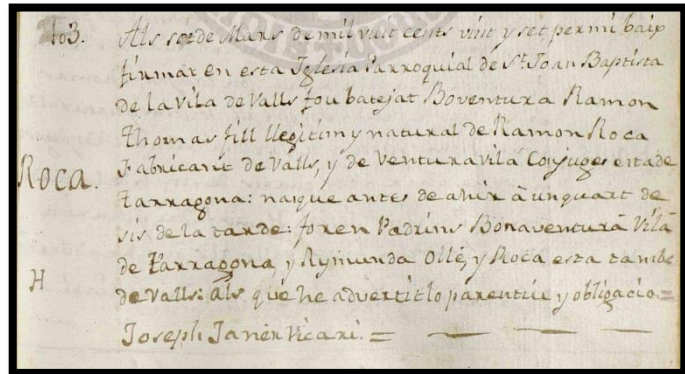 103.
Als set de Mars de mil vuit cents vint y set per mi baix
firmar en esta Iglesia Parroquial de St. Joan Baptista
de la Vila de Valls fou batejat Boventura Ramon
Thomas fill llegitim y natural de Ramon Roca
Roca.
Fabricant de Valls, y de Ventura Vilá Conjuges esta de
Tarragona: naique antes de ahir á un quart de
sis de la tarde: foren Padrins Bonaventura Vilá
de Tarragona, y Rymunda Ollé, y Roca esta tambe
H
de Valls: als que he advertit lo parentiu y obligacio =
Joseph Janer Vicari. =